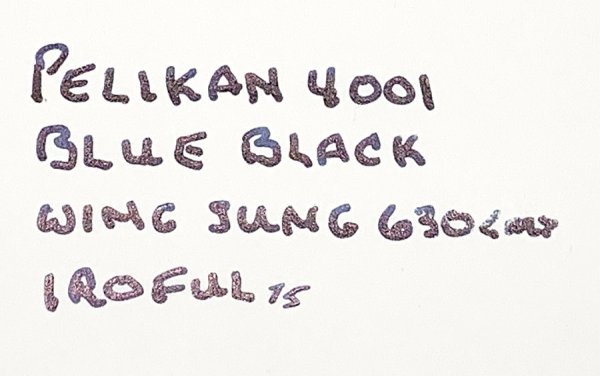 PELIKAN 4001
BLUE BLACK
WING SUNG 630
IROFUL 75